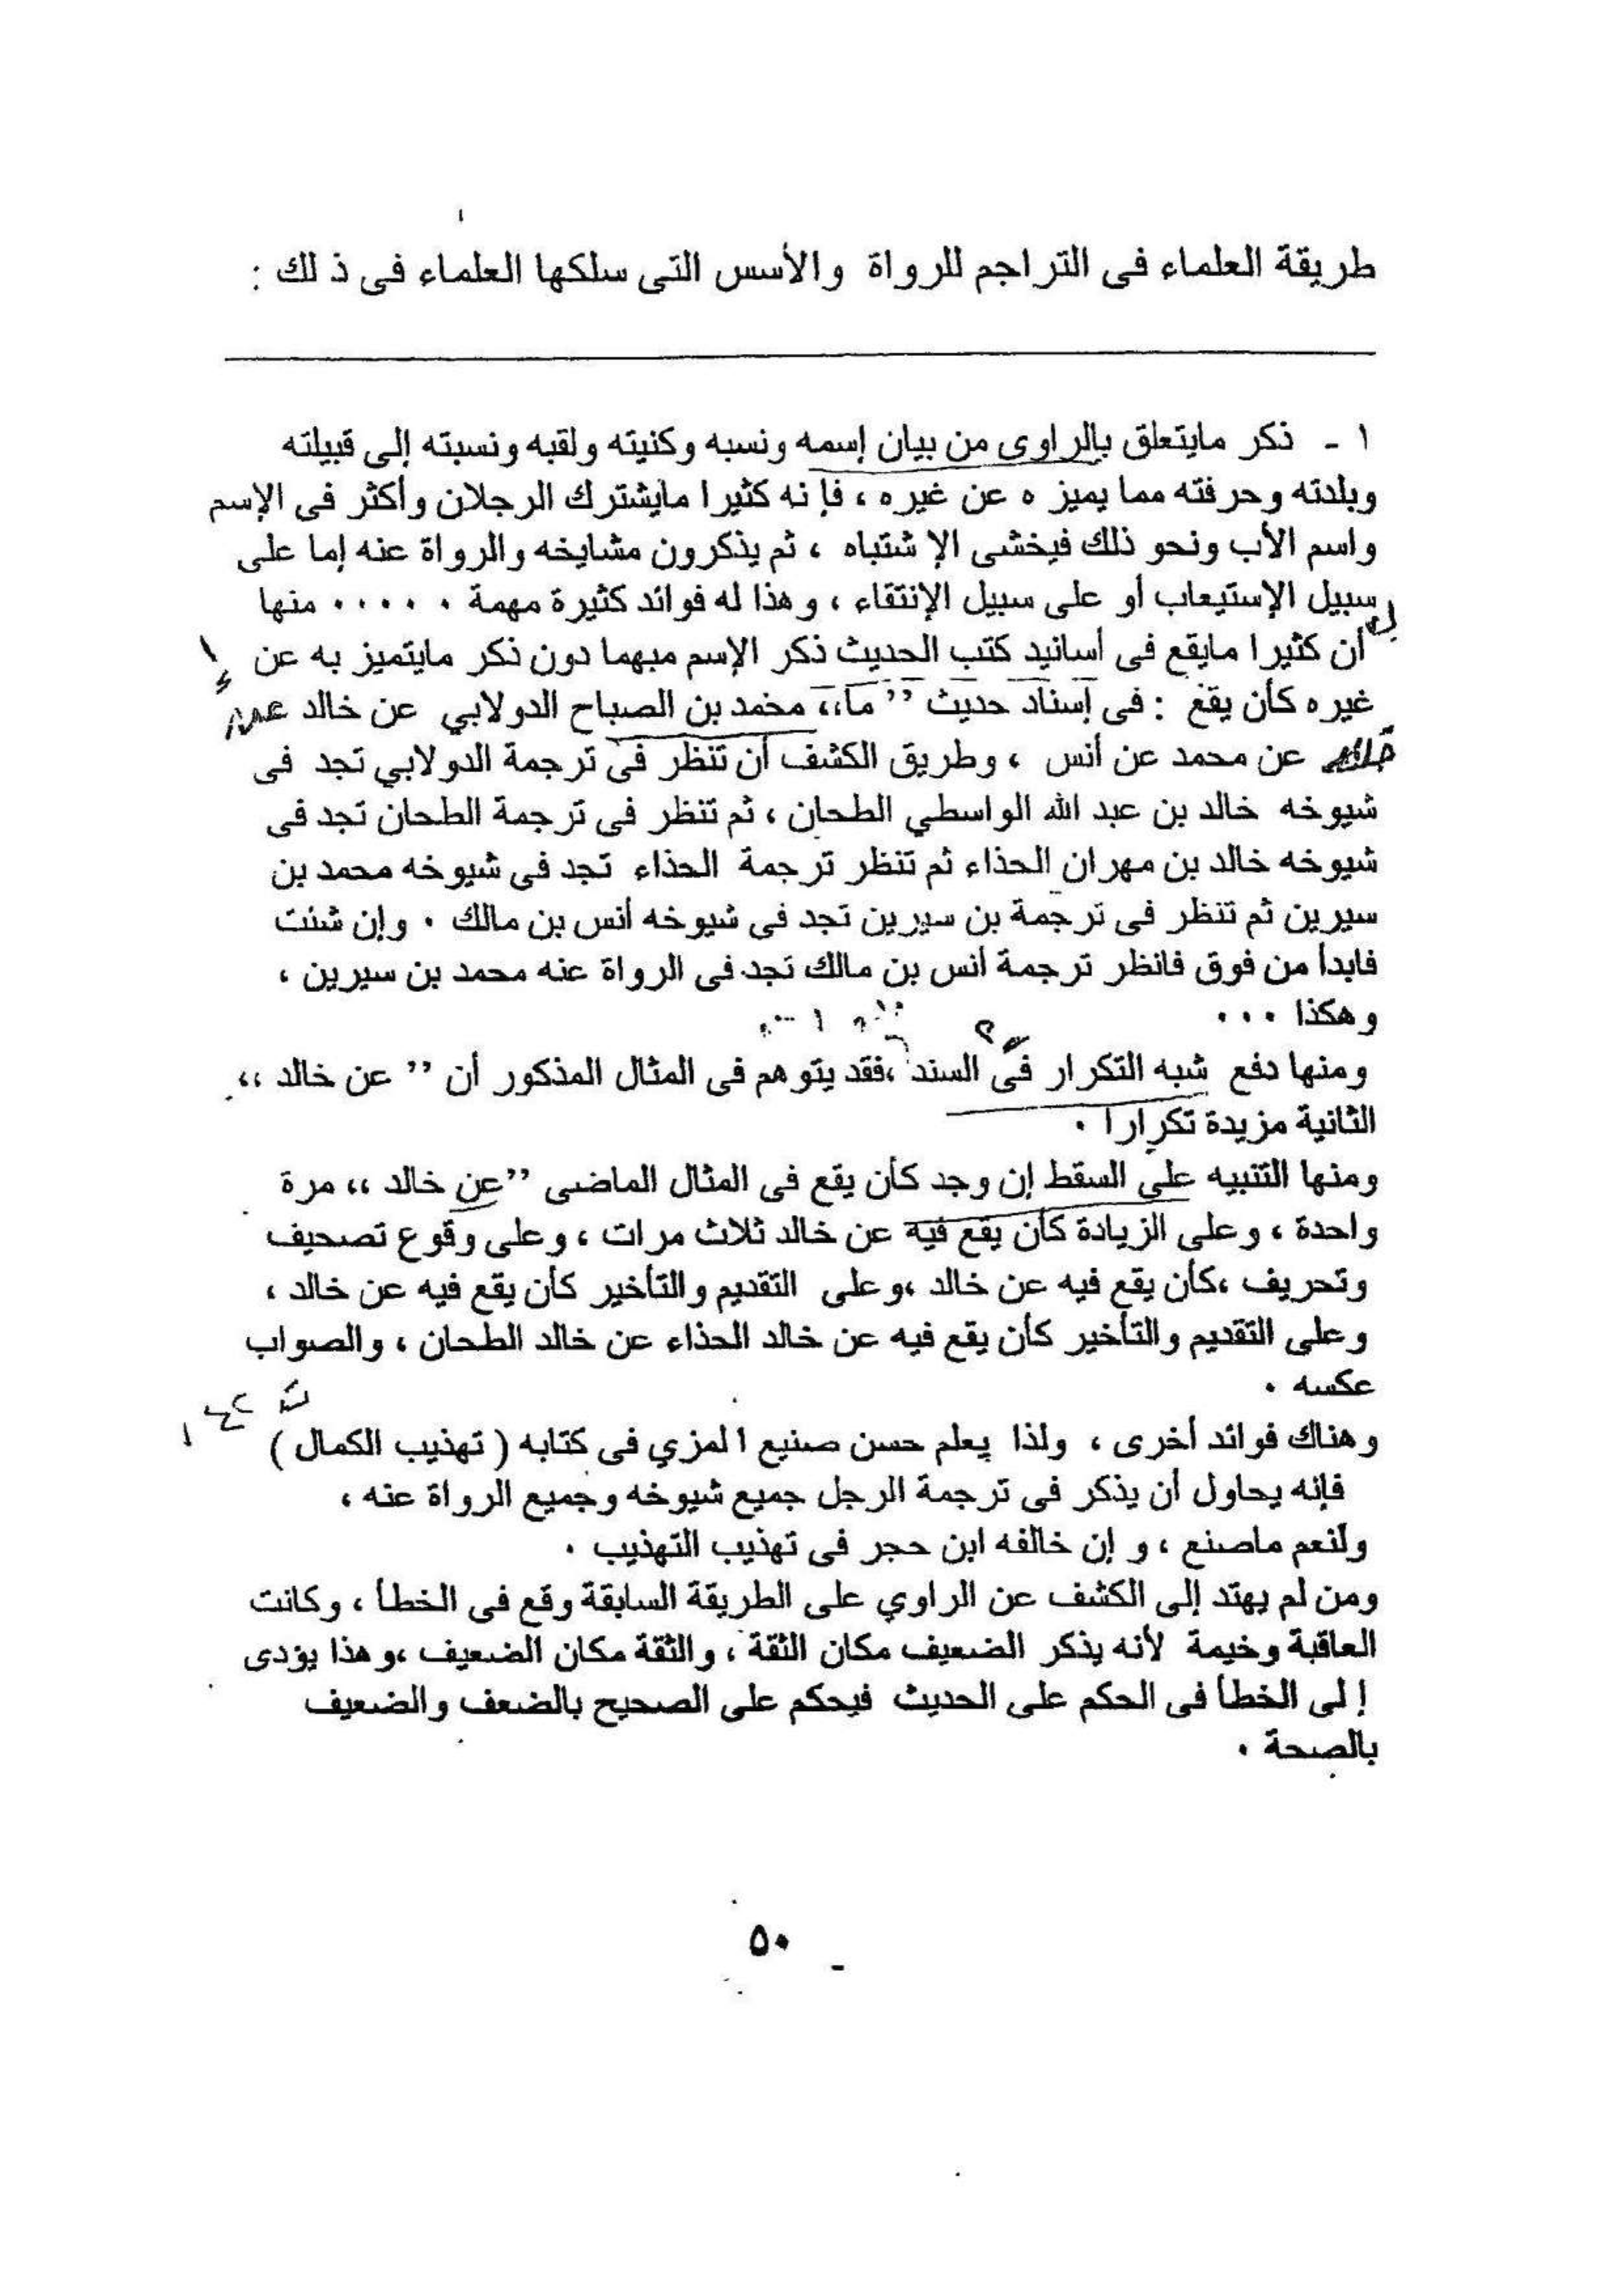 طريقة العلماء فى التراجم للرواة والأسس التى سلكها العلماء فى ذلك :
١ - ذكر مايتعلق بالراوى من بيان إسمه ونسبه وكنيته ولقبه ونسبته إلى قبيلته
وبلدته وحرفته مما يميزه عن غيره ، فإنه كثيرا مايشترك الرجلان وأكثر فى الإسم
واسم الأب ونحو ذلك فيخشى الإشتباه ، ثم يذكرون مشايخه والرواة عنه إما على
سبيل الإستيعاب أو على سبيل الإنتقاء ، وهذا له فوائد كثيرة مهمة ٠٠٠٠٠ منها
أن كثيرا مايقع فى أسانيد كتب الحديث ذكر الإسم مبهما دون ذكر مايتميز به عن
غيره كأن يقع : فى إسناد حديث ” ما،، محمد بن الصباح الدولابي عن خالد عن
خالد عن محمد عن أنس ، وطريق الكشف أن تنظر فى ترجمة الدولابي تجد فى
شيوخه خالد بن عبد الله الواسطي الطحان ، ثم تنظر فى ترجمة الطحان تجد فى
شيوخه خالد بن مهران الحذاء ثم تنظر ترجمة الحذاء تجد فى شيوخه محمد بن
سيرين ثم تنظر فى ترجمة بن سيرين تجد فى شيوخه أنس بن مالك ٠ وإن شئت
فابدأ من فوق فانظر ترجمة أنس بن مالك تجد فى الرواة عنه محمد بن سيرين ،
وهكذا ٠٠٠
ومنها دفع شبه التكرار فى السند ،فقد يتوهم فى المثال المذكور أن ” عن خالد ،،
الثانية مزيدة تكرارا ٠
ومنها التنبيه على السقط إن وجد كأن يقع فى المثال الماضى ”عن خالد ،، مرة
واحدة ، وعلى الزيادة كأن يقع فيه عن خالد ثلاث مرات ، وعلى وقوع تصحيف
وتحريف ،كأن يقع فيه عن خالد ،وعلى التقديم والتأخير كأن يقع فيه عن خالد ،
وعلى التقديم والتأخير كأن يقع فيه عن خالد الحذاء عن خالد الطحان ، والصواب
عكسه ٠
وهناك فوائد أخرى ، ولذا يعلم حسن صنيع المزي فى كتابه ( تهذيب الكمال )
فإنه يحاول أن يذكر فى ترجمة الرجل جميع شيوخه وجميع الرواة عنه ،
ولنعم ماصنع ، و إن خالفه ابن حجر فى تهذيب التهذيب ٠
ومن لم يهتد إلى الكشف عن الراوي على الطريقة السابقة وقع فى الخطأ ، وكانت
العاقبة وخيمة لأنه يذكر الضعيف مكان الثقة ، والثقة مكان الضعيف ،وهذا يؤدى
إلى الخطأ فى الحكم على الحديث فيحكم على الصحيح بالضعف والضعيف
بالصحة ٠
٥٠